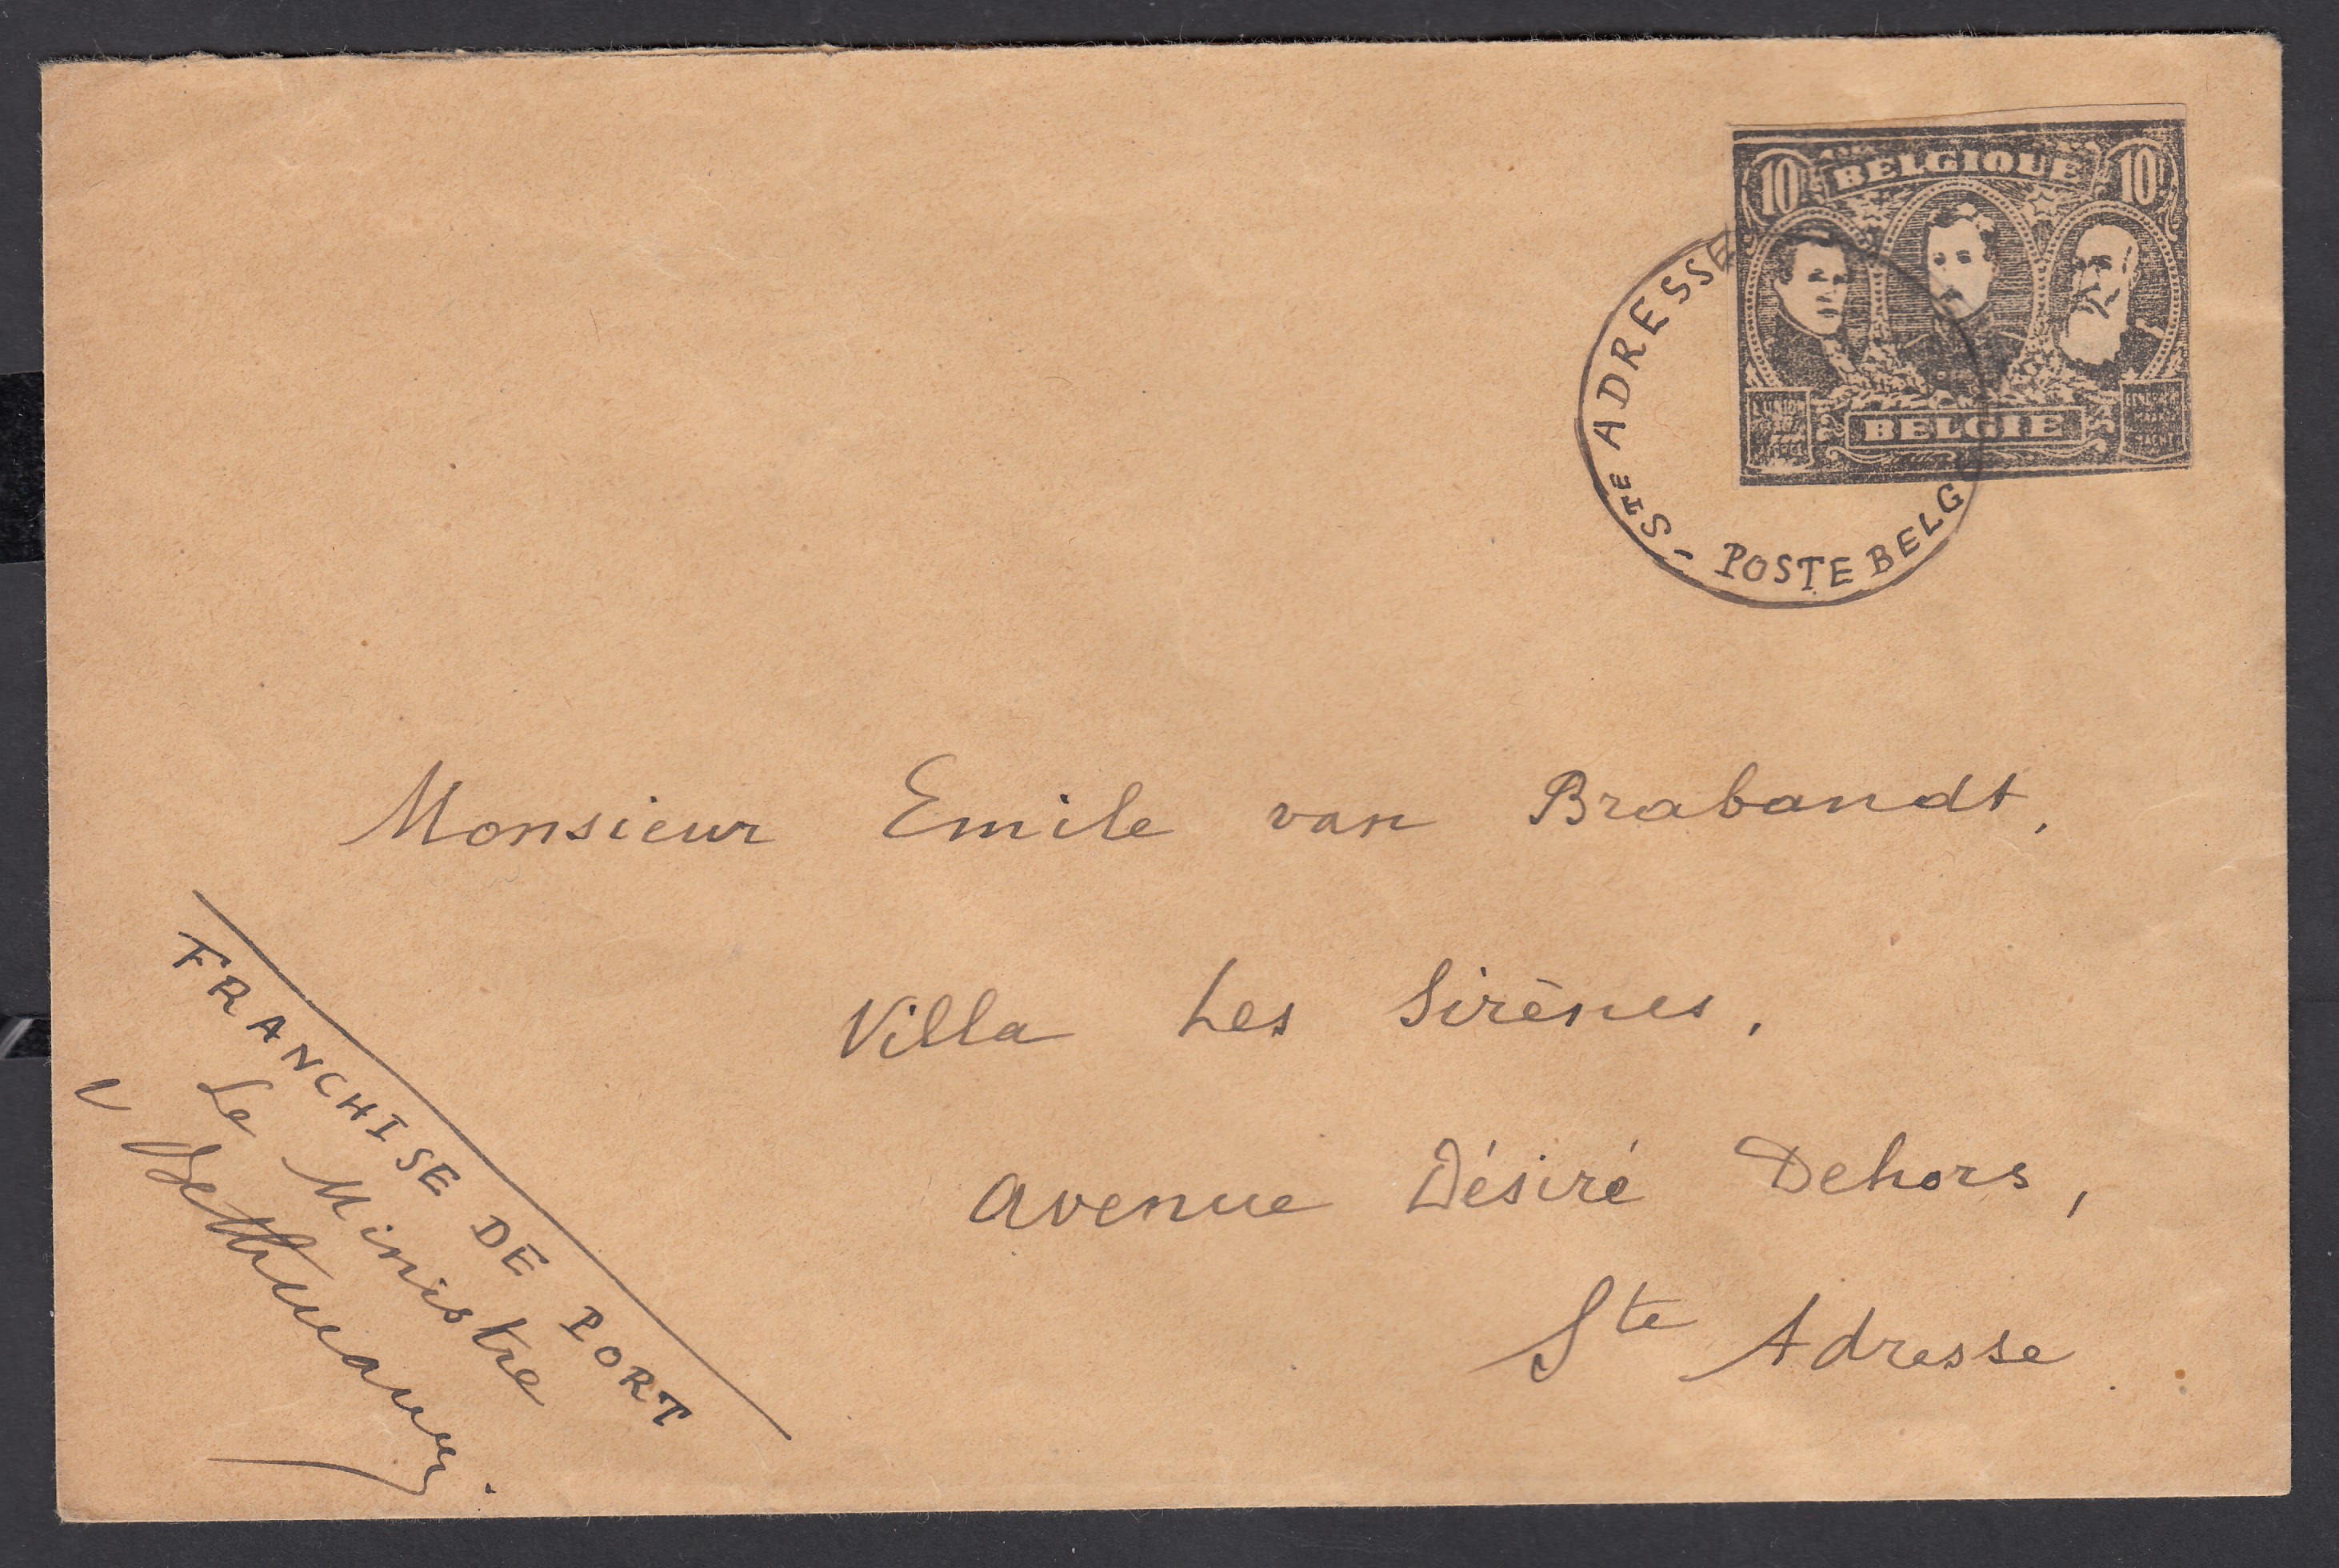 10 BELGIQUE 10
BELGIE
L'UNION
STE ADRESSE - POSTE BELG
Monsieur Emile van Brabandt,
Villa Les Sirènes,
avenue Désiré Dehors,
Ste Adresse
FRANCHISE DE PORT
Le Ministre